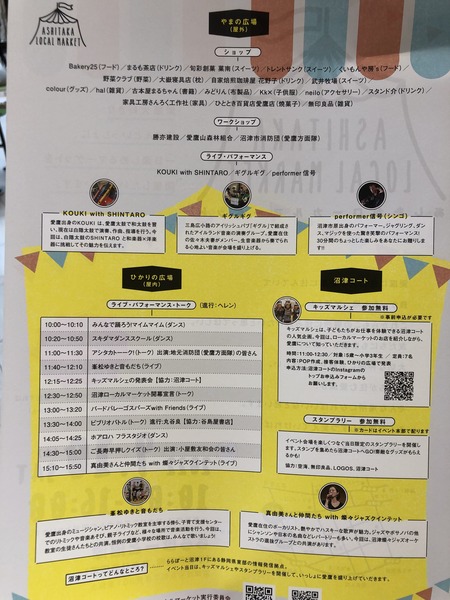 ASHITAKA
LOCAL MARKET
やまの広場
(屋外)
ショップ
Bakery25(フード)/まるも茶店(ドリンク)/旬彩創菓 菓南(スイーツ)/トレントサンク(スイーツ)/くいもんや房's(フード)/
野菜クラブ(野菜)/大嶽寝具店(枕)/自家焙煎珈琲屋 花野子(ドリンク)/武井牧場(スイーツ)/
colour(グッズ)/hal(雑貨)/古本屋まるちゃん(書籍)/みどりん(布製品)/Kk×(子供服)/neilo(アクセサリー)/スタンド介(ドリンク)/
家具工房さんろく工作社(家具)/ひととき百貨店愛鷹店(焼菓子)/無印良品(雑貨)
ワークショップ
勝亦建設/愛鷹山森林組合/沼津市消防団(愛鷹方面隊)
ライブ・パフォーマンス
KOUKI with SHINTARO/ギグルギグ/performer 信号
KOUKI with SHINTARO
愛鷹出身のKOUKIは、愛鷹太鼓で和太鼓を習
い、現在は白陰太鼓で演奏、作曲、指導を行う。今
回は、白陰太鼓のSHINTAROと和楽器×洋楽
器に挑戦してその魅力を伝えます。
ギグルギグ
三島広小路のアイリッシュパブ「ギグル」で結成さ
れたアイルランド音楽の演奏グループ。愛鷹在住
の佐々木夫妻がメンバー。生音楽器から奏でられ
る心地よい音楽が会場を盛り上げる。
performer信号(シンゴ)
沼津市原出身のパフォーマー。ジャグリング、ダン
ス、マジックを使った驚き笑撃のパフォーマンス!
30分間のちょっとした楽しみをあなたにお贈りします!!
ひかりの広場
(屋内)
ライブ・パフォーマンス・トーク (進行:ヘレン)
10:00〜10:10 みんなで踊ろう!マイムマイム(ダンス)
10:20〜10:50 スキダマダンススクール(ダンス)
11:00〜11:30 アシタカトーク!(トーク) 出演:地元消防団(愛鷹方面隊)の皆さん
11:40〜12:10 峯松ゆきと音もだち(ライブ)
12:15〜12:25 キッズマルシェの発表会 [協力:沼津コート]
12:30〜12:50 沼津ローカルマーケット開幕宣言(トーク)
13:00〜13:20 バードバレーゴスパーズwith Friends(ライブ)
13:30〜14:00 ビブリオバトル(トーク) 進行:大谷良 [協力:谷島屋書店]
14:05〜14:25 ホアロハ フラスタジオ(ダンス)
14:30〜15:00 ご長寿早押しクイズ(トーク) 出演:小屋敷友和会の皆さん
15:10〜15:50 真由美さんと仲間たち with 爛々ジャズクインテット(ライブ)
沼津コート
キッズマルシェ 参加無料
※事前申込が必要です
キッズマルシェは、子どもたちがお仕事を体験できる沼津コート
の人気企画。今回は、ローカルマーケットのお店を紹介しながら、
愛鷹について知っていただきます。
時間:11:00-12:30/対象:5歳〜小学3年生/定員:7名
内容:POP作成、接客体験、ひかりの広場で発表
申込方法:沼津コートのInstagramの
トップお申込みフォームから
お願いします。
スタンプラリー 参加無料
※カードはイベント本部で配ります
イベント会場を楽しくつなぐ当日限定のスタンプラリーを開催し
ます。スタンプを集めたら沼津コートへGO!素敵なグッズがもらえ
るかも!
協力:登海、無印良品、LOGOS、沼津コート
峯松ゆきと音もだち
愛鷹出身のミュージシャン。ピアノ・リトミック教室を主宰する傍ら、子育て支援センター
でのリトミックや音楽あそび、親子ライブなど、様々な場所で音楽活動を行う。今回は、
教室の生徒さんたちとの共演。恒例の愛鷹小学校の校歌は、みんなで歌いましょう!
真由美さんと仲間たち with 爛々ジャズクインテット
愛鷹在住のボーカリスト。艶やかでハスキーな歌声が魅力。ジャズやボサノバの他
シャンソンや日本の名曲などレパートリーも多い。今回は、沼津爛々ジャズオーケス
トラの選抜グループとの共演があります。
沼津コートってどんなところ?
ららぽーと沼津1Fにある静岡県東部の情報発信拠点。
イベント当日は、キッズマルシェやスタンプラリーを開催して、いっしょに愛鷹を盛り上げていきます。
マーケット実行委員会